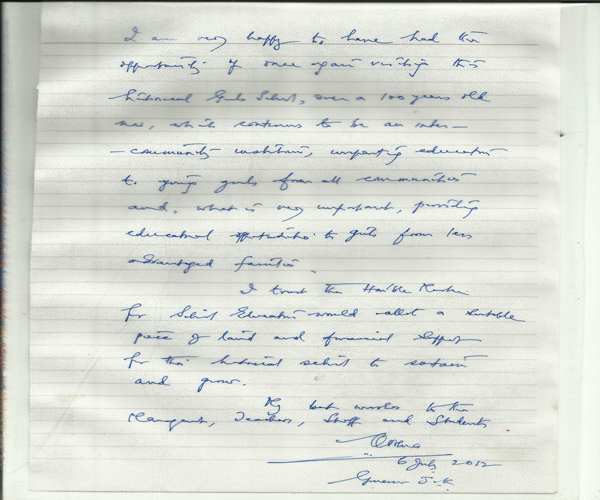 I am very happy to have had the
opportunity of once again visiting this
historical Girls School, over a 100 years old
now, which continues to be an inter-
-community institution, imparting education
to young girls from all communities
and, what is very important, providing
educational opportunities to girls from less
advantaged families.
I trust the Hon'ble Minister
for School Education would allot a suitable
piece of land and financial support
for this historical school to sustain
and grow.
My best wishes to the
Management, Teachers, Staff and Students
6 July 2012
Governor J&K